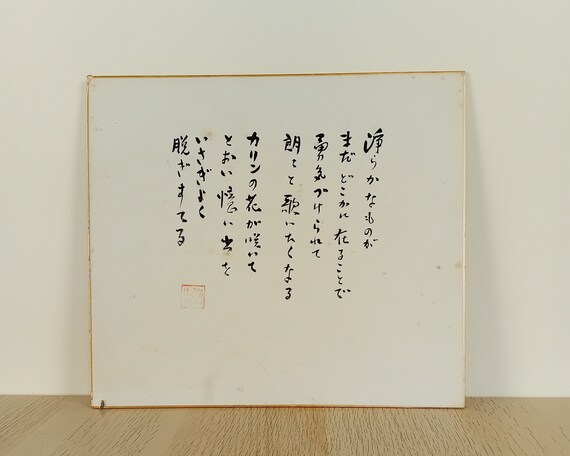 浄らかなものが
まだどこかに在ることで
勇気づけられて
朗々と歌いたくなる
カリンの花が咲いて
とおい憶い出を
いさぎよく
脱ぎすてる